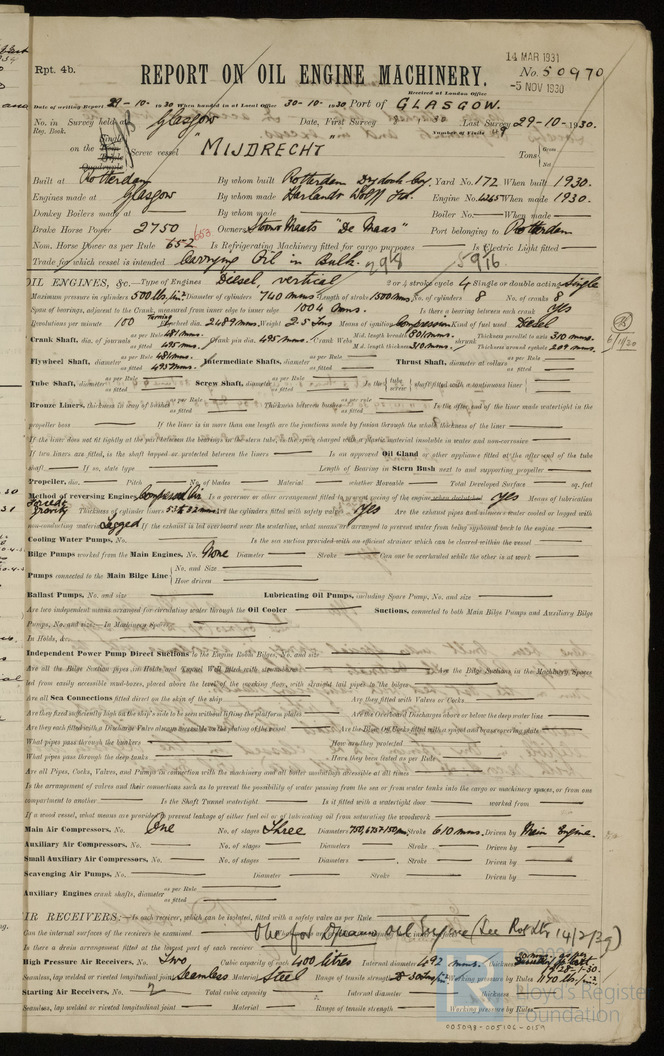 14 MAR 1931
Rpt. 4b.
REPORT ON OIL ENGINE MACHINERY.
No. 50970
Received at London Office
-5 NOV 1930
Date of writing Report 29-10-1930 When handed in at Local Office 30-10-1930 Port of GLASGOW.
No. in Survey held at Glasgow Date, First Survey Last Survey 29-10-1930.
Reg. Book. Number of Visits
on the Single Screw vessel "MIJDRECHT" Tons Gross Net
Built at Rotterdam By whom built Rotterdam Dry dock Coy. Yard No. 172 When built 1930.
Engines made at Glasgow By whom made Harland & Wolff Ltd. Engine No. 4265 When made 1930.
Donkey Boilers made at By whom made Boiler No. When made
Brake Horse Power 2750 Owners Stoom Maats "De Maas" Port belonging to Rotterdam
Nom. Horse Power as per Rule 652 653 Is Refrigerating Machinery fitted for cargo purposes Is Electric Light fitted
Trade for which vessel is intended Carrying Oil in Bulk.
OIL ENGINES, &c. Type of Engines Diesel, vertical 2 or 4 stroke cycle 4 Single or double acting Single
Maximum pressure in cylinders 500 lbs/in² Diameter of cylinders 740 mms. Length of stroke 1500 mms No. of cylinders 8 No. of cranks 8
Span of bearings, adjacent to the Crank, measured from inner edge to inner edge 1004 mms. Is there a bearing between each crank yes
Revolutions per minute 100 Flywheel dia. 2489 mms. Weight 2.5 Tons Means of ignition Compression Kind of fuel used Diesel
Crank Shaft, dia. of journals as per Rule 481 mms. as fitted 495 mms. Crank pin dia. 495 mms. Crank Webs Mid. length breadth Mid. length thickness 310 mms. shrunk Thickness parallel to axis 310 mms. Thickness around eyehole
Flywheel Shaft, diameter as per Rule 481 mms. as fitted 495 mms. Intermediate Shafts, diameter as per Rule as fitted Thrust Shaft, diameter at collars as per Rule as fitted
Tube Shaft, diameter as per Rule as fitted Screw Shaft, diameter as per Rule as fitted Is the tube screw shaft fitted with a continuous liner
Bronze Liners, thickness in way of bushes as per Rule as fitted Thickness between bushes as per Rule as fitted Is the after end of the liner made watertight in the
propeller boss If the liner is in more than one length are the junctions made by fusion through the whole thickness of the liner
If the liner does not fit tightly at the part between the bearings in the stern tube, is the space charged with a plastic material insoluble in water and non-corrosive
If two liners are fitted, is the shaft lapped or protected between the liners Is an approved Oil Gland or other appliance fitted at the after end of the tube
shaft If so, state type Length of Bearing in Stern Bush next to and supporting propeller
Propeller, dia. Pitch No. of blades Material whether Moveable Total Developed Surface sq. feet
Method of reversing Engines Compressed air Is a governor or other arrangement fitted to prevent racing of the engine when declutched yes Means of lubrication
Forced & gravity Thickness of cylinder liners Are the cylinders fitted with safety valves yes Are the exhaust pipes and silencers water cooled or lagged with
non-conducting material Lagged If the exhaust is led overboard near the waterline, what means are arranged to prevent water from being syphoned back to the engine
Cooling Water Pumps, No. Is the sea suction provided with an efficient strainer which can be cleared within the vessel
Bilge Pumps worked from the Main Engines, No. None Diameter Stroke Can one be overhauled while the other is at work
Pumps connected to the Main Bilge Line No. and Size
How driven
Ballast Pumps, No. and size Lubricating Oil Pumps, including Spare Pump, No. and size
Are two independent means arranged for circulating water through the Oil Cooler Suctions, connected to both Main Bilge Pumps and Auxiliary Bilge
Pumps, No. and size: In Machinery Spaces
In Holds, &c.
Independent Power Pump Direct Suctions to the Engine Room Bilges, No. and size
Are all the Bilge Suction pipes in Holds and Tunnel Well fitted with strum-boxes Are the Bilge Suctions in the Machinery Spaces
led from easily accessible mud-boxes, placed above the level of the working floor, with straight tail pipes to the bilges
Are all Sea Connections fitted direct on the skin of the ship Are they fitted with Valves or Cocks
Are they fixed sufficiently high on the ship's side to be seen without lifting the platform plates Are the Overboard Discharges above or below the deep water line
Are they each fitted with a Discharge Valve always accessible on the plating of the vessel Are the Blow Off Cocks fitted with a spigot and brass covering plate
What pipes pass through the bunkers How are they protected
What pipes pass through the deep tanks Have they been tested as per Rule
Are all Pipes, Cocks, Valves, and Pumps in connection with the machinery and all boiler mountings accessible at all times
Is the arrangement of valves and their connections such as to prevent the possibility of water passing from the sea or from water tanks into the cargo or machinery spaces, or from one
compartment to another Is the Shaft Tunnel watertight Is it fitted with a watertight door worked from
If a wood vessel, what means are provided to prevent leakage of either fuel oil or of lubricating oil from saturating the woodwork
Main Air Compressors, No. One No. of stages Three Diameters Stroke 610 mms. Driven by Main Engine.
Auxiliary Air Compressors, No. No. of stages Diameters Stroke Driven by
Small Auxiliary Air Compressors, No. No. of stages Diameters Stroke Driven by
Scavenging Air Pumps, No. Diameter Stroke Driven by
Auxiliary Engines crank shafts, diameter as per Rule as fitted
IR RECEIVERS: Is each receiver, which can be isolated, fitted with a safety valve as per Rule
Can the internal surfaces of the receivers be examined One for Dynamo Oil Engine (See Rot. Ltr. 14/2/39)
Is there a drain arrangement fitted at the lowest part of each receiver
High Pressure Air Receivers, No. Two Cubic capacity of each 400 litres Internal diameter 492 mms. thickness
Seamless, lap welded or riveted longitudinal joint Seamless Material Steel Range of tensile strength Working pressure by Rules 1170 lbs/in²
Starting Air Receivers, No. 2 Total cubic capacity Internal diameter thickness
Seamless, lap welded or riveted longitudinal joint Material Range of tensile strength Working pressure by Rules
Lloyd's Register
Foundation
005098-005106-0159